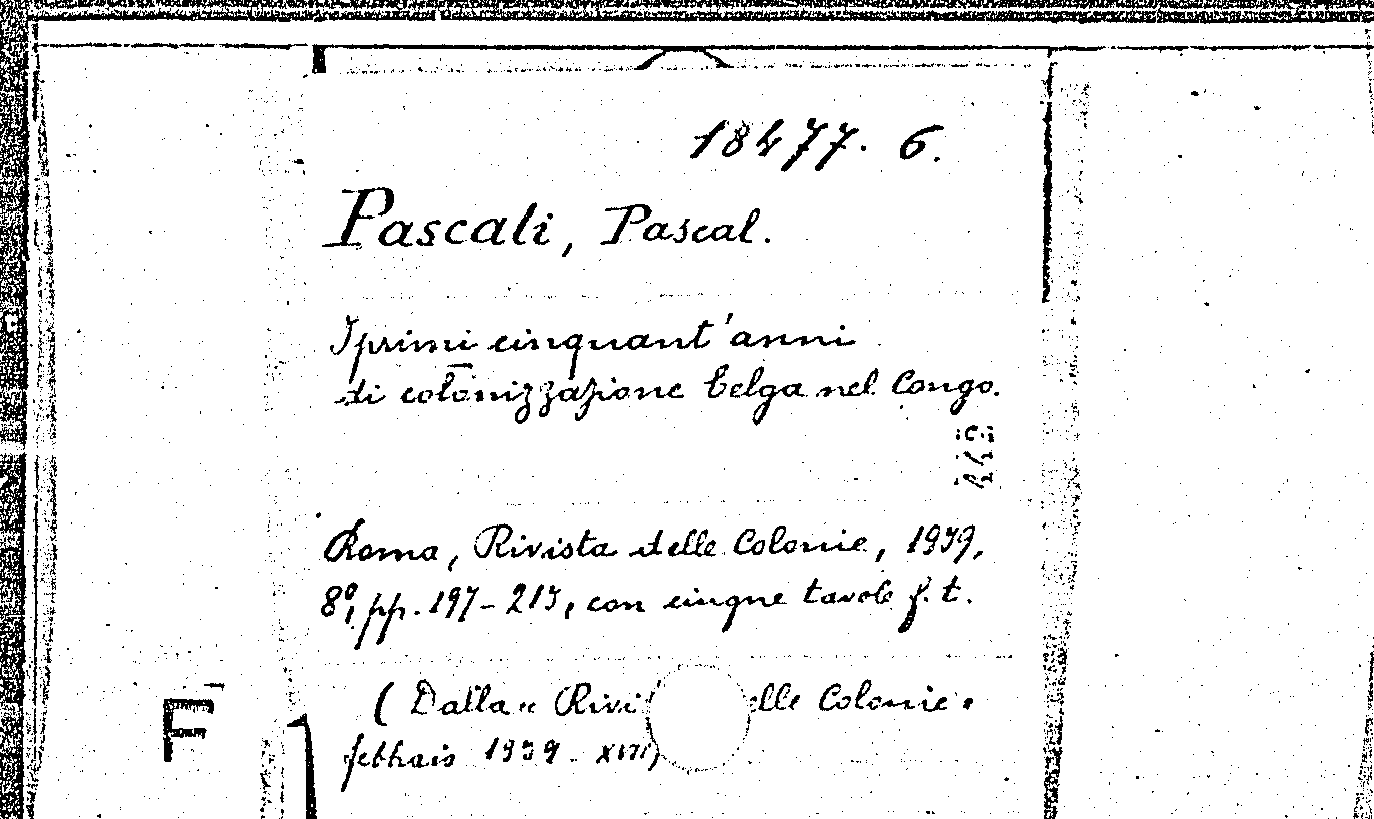 18477. 6.
Pascali, Pascal.
I primi cinquant'anni
di colonizzazione belga nel Congo.
Roma, Rivista delle Colonie, 1939,
8°, pp. 197-213, con cinque tavole f. t.
(Dalla « Rivi elle Colonie »
febbraio 1939 - XVII)
F